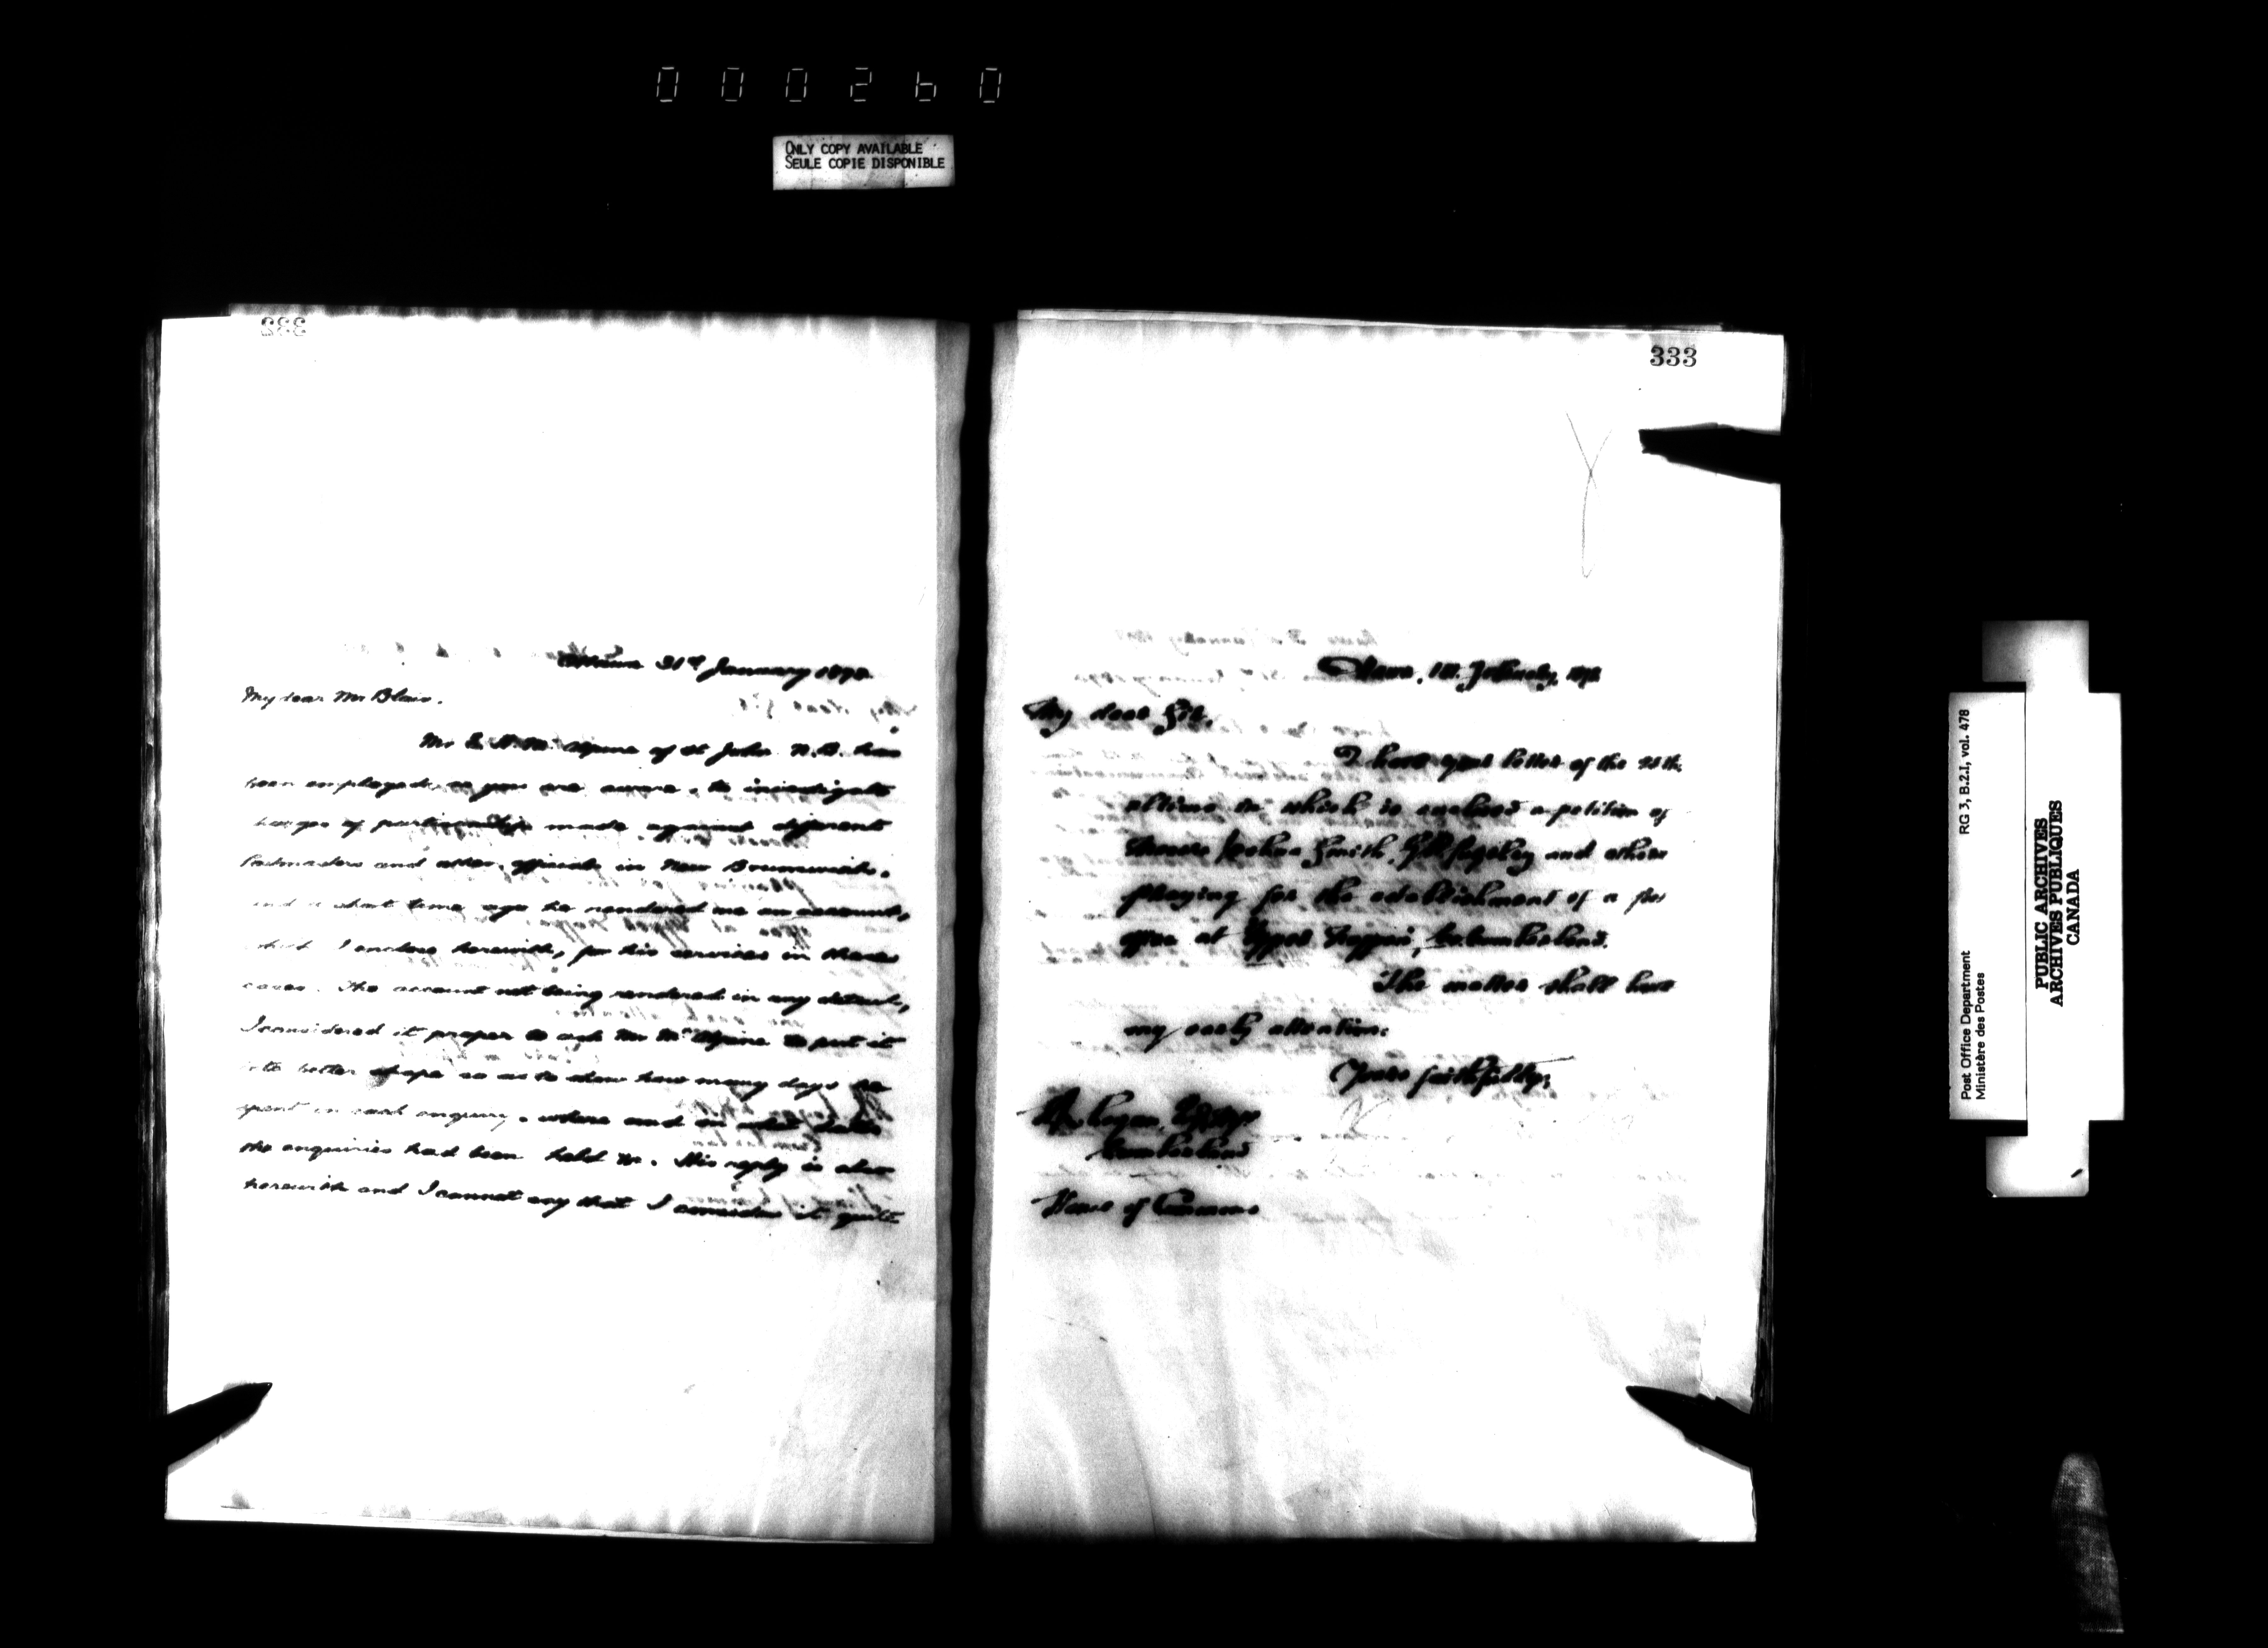 000260
ONLY COPY AVAILABLE
SEULE COPIE DISPONIBLE
332
Ottawa 31st January 1898
My dear Mr Blair.
Mr E. H. McAlpine of St John N.B. has
been employed, as you are aware, to investigate
charges of partisanship made against different
Postmasters and other officials in New Brunswick.
and a short time ago he rendered me an account,
which I enclose herewith, for his services in these
cases. The account not being rendered in any detail,
I considered it proper to ask Mr McAlpine to put it
into better shape so as to show how many days he
spent in each enquiry, where and on what dates
the enquiries had been held &c. His reply is also
herewith and I cannot say that I consider it quite
333
Ottawa, 1st. February, 1898
My dear Sir,
I have your letter of the 28th.
ultimo in which is enclosed a petition of
Messrs Smith, and others
praying for the establishment of a post
office at Cumberland.
The matter shall have
my early attention.
Yours faithfully,
H. Logan, Esq.
Cumberland
House of Commons
Post Office Department
Ministère des Postes
RG 3, B.2.I, vol. 478
PUBLIC ARCHIVES
ARCHIVES PUBLIQUES
CANADA